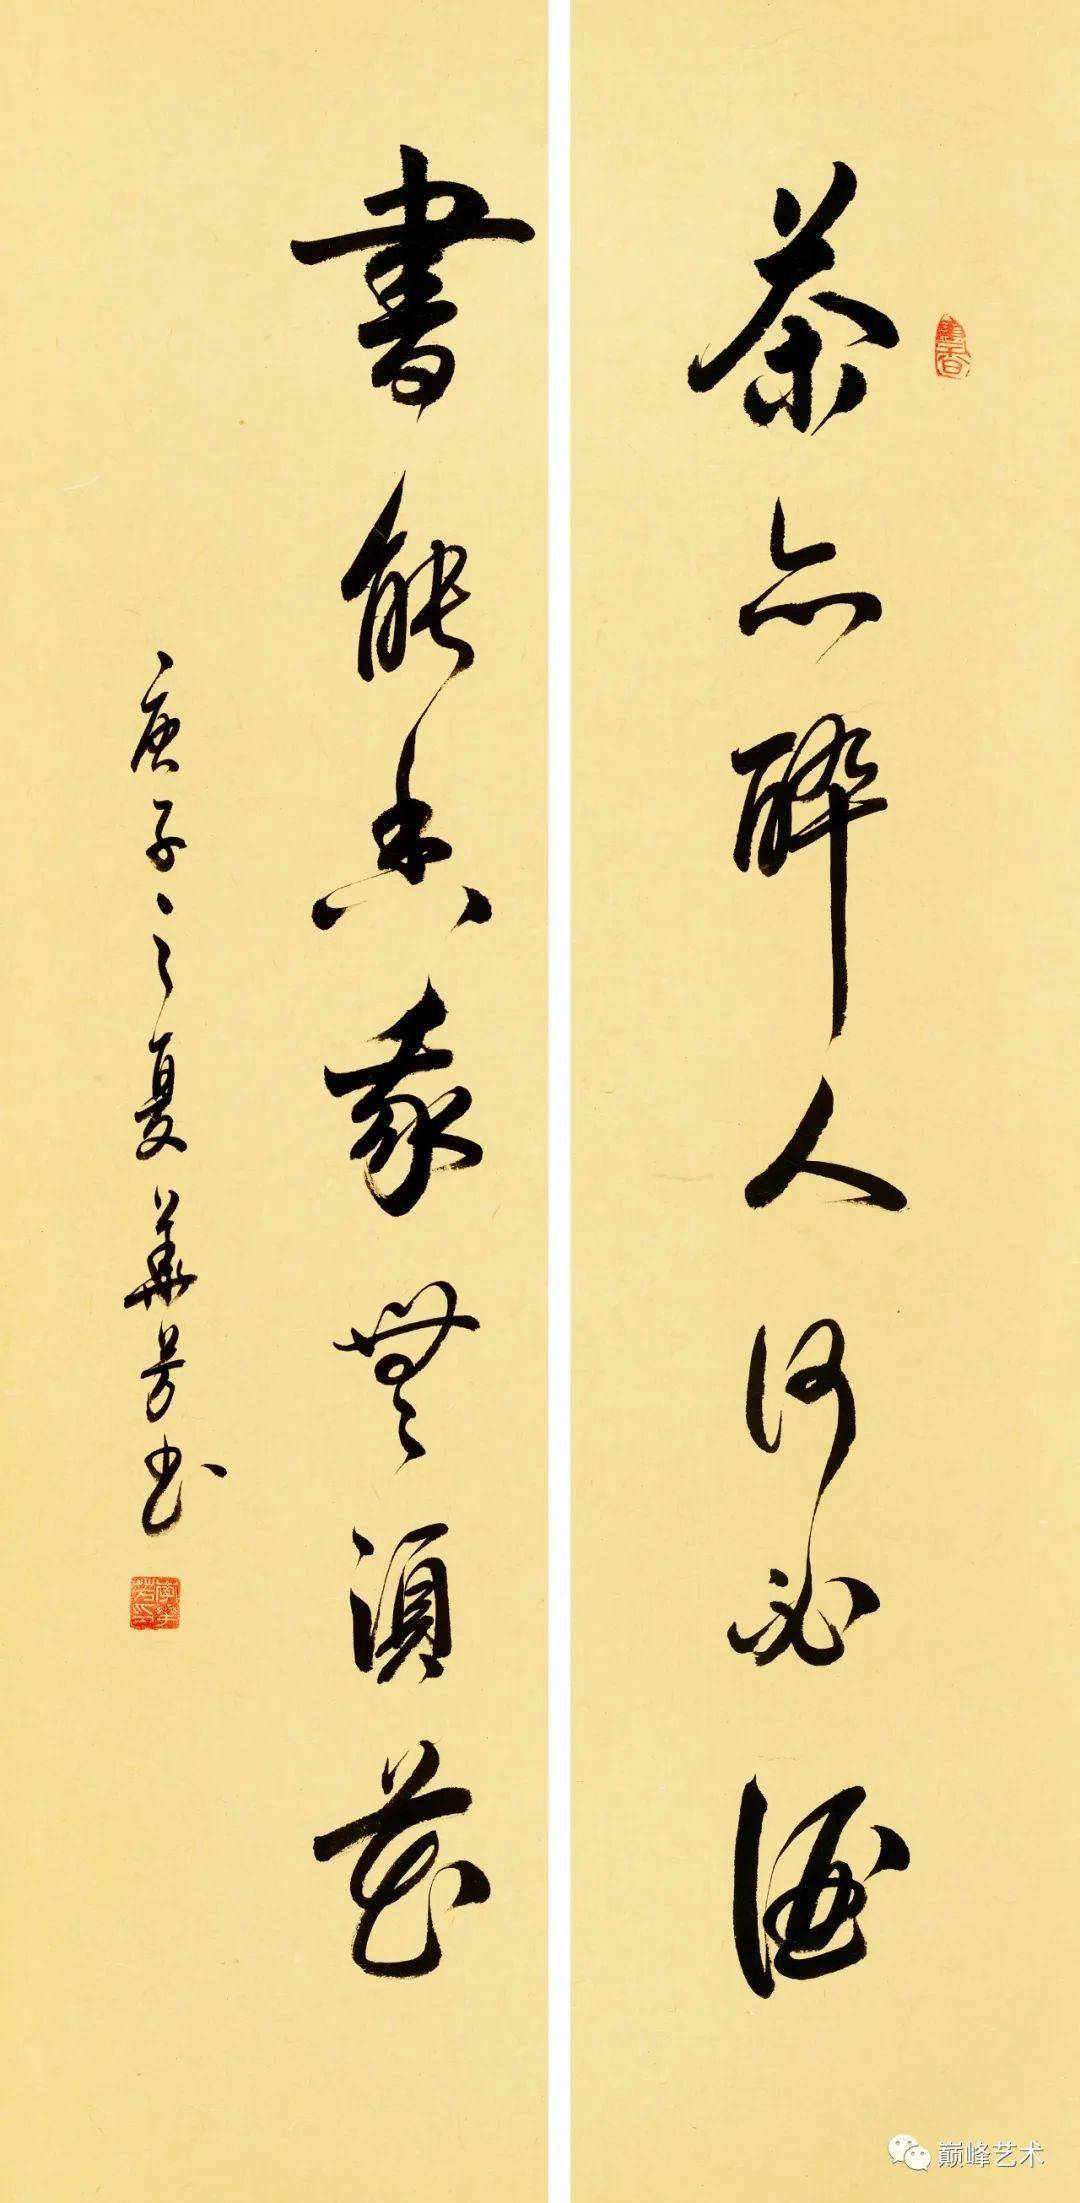 茶亦醉人何必酒
書香
書能香我無須花
庚子之夏華芳书
巅峰艺术